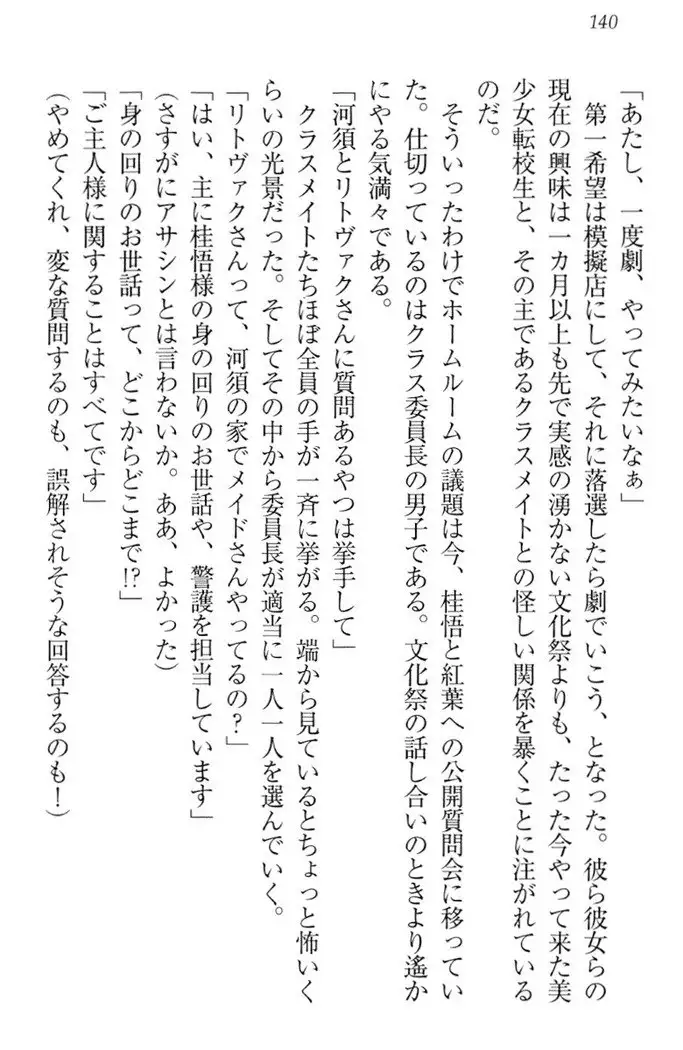 140
「あたし、一度劇、やってみたいなぁ」
　第一希望は模擬店にして、それに落選したら劇でいこう、となった。彼ら彼女らの
現在の興味は一カ月以上も先で実感の湧かない文化祭よりも、たった今やって来た美
少女転校生と、その主であるクラスメイトとの怪しい関係を暴くことに注がれている
のだ。
　そういったわけでホームルームの議題は今、桂悟と紅葉への公開質問会に移ってい
た。仕切っているのはクラス委員長の男子である。文化祭の話し合いのときより遙か
にやる気満々である。
「河須とリトヴァクさんに質問あるやつは挙手して」
　クラスメイトたちほぼ全員の手が一斉に挙がる。端から見ているとちょっと怖いく
らいの光景だった。そしてその中から委員長が適当に一人一人を選んでいく。
「リトヴァクさんって、河須の家でメイドさんやってるの？」
「はい、主に桂悟様の身の回りのお世話や、警護を担当しています」
（さすがにアサシンとは言わないか。ああ、よかった）
「身の回りのお世話って、どこからどこまで!?」
「ご主人様に関することはすべてです」
（やめてくれ、変な質問するのも、誤解されそうな回答するのも！）